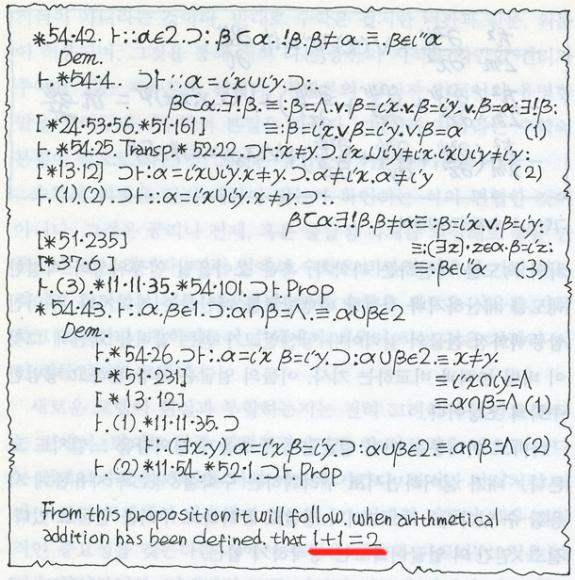 *54·42. ⊢::α∈2.⊃:.β⊂α.∃!β.β≠α.≡.β∈ι‘‘α
Dem.
⊢.*54·4. ⊃⊢::α=ι‘x∪ι‘y.⊃:.
β⊂α.∃!β.≡:β=Λ.v.β=ι‘x.v.β=ι‘y.v.β=α:∃!β:
[*24·53·56.*51·161] ≡:β=ι‘x.v.β=ι‘y.v.β=α (1)
⊢.*54·25.Transp.*52·22.⊃⊢:x≠y.⊃.ι‘x∪ι‘y≠ι‘x.ι‘x∪ι‘y≠ι‘y:
[*13·12] ⊃⊢:α=ι‘x∪ι‘y.x≠y.⊃.α≠ι‘x.α≠ι‘y (2)
⊢.(1).(2).⊃⊢::α=ι‘x∪ι‘y.x≠y.⊃:.
β⊂α.∃!β.β≠α.≡:β=ι‘x.v.β=ι‘y:
[*51·235] ≡:(∃z).z∈α.β=ι‘z:
[*37·6] ≡:β∈ι‘‘α (3)
⊢.(3).*11·11·35.*54·101.⊃⊢.Prop
*54·43.⊢:.α.β∈1.⊃:α∩β=Λ.≡.α∪β∈2
Dem.
⊢.*54·26.⊃⊢:.α=ι‘x.β=ι‘y.⊃:α∪β∈2.≡.x≠y.
[*51·231] ≡.ι‘x∩ι‘y=Λ.
[*13·12] ≡.α∩β=Λ (1)
⊢.(1).*11·11·35.⊃
⊢:.(∃x,y).α=ι‘x.β=ι‘y.⊃:α∪β∈2.≡.α∩β=Λ (2)
⊢.(2).*11·54.*52·1.⊃⊢.Prop
From this proposition it will follow, when arithmetical
addition has been defined, that 1+1=2